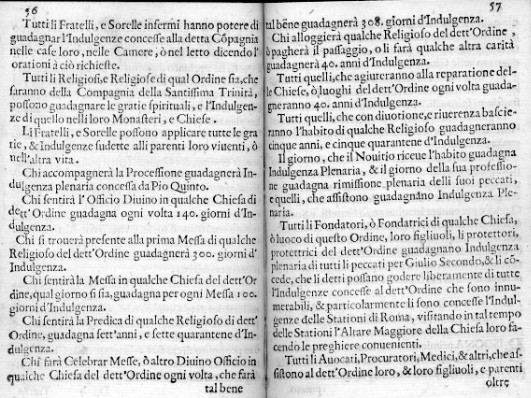 56
Tutti li Fratelli, e Sorelle infermi hanno potere di
guadagnar l'Indulgenze concesse alla detta Cõpagnia
nelle case loro, nelle Camere, ò nel letto dicendo l'
orationi à ciò richieste.
Tutti li Religiosi, e Religiose di qual Ordine sia, che
saranno della Compagnia della Santissima Trinità,
possono guadagnare le gratie spirituali, e l'Indulgen-
ze di quello nelli loro Monasteri, e Chiese.
Li Fratelli, e Sorelle possono applicare tutte le gra
tie, & Indulgenze sudette alli parenti loro viuenti, ò
nell'altra vita.
Chi accompagnerà la Processione guadagnerà In-
dulgenza plenaria concessa da Pio Quinto.
Chi sentirà l'Officio Diuino in qualche Chiesa di
dett'Ordine guadagna ogni volta 140. giorni d'In-
dulgenza.
Chi si trouerà presente alla prima Messa di qualche
Religioso del dett'Ordine guadagnerà 300. giorni d'
Indulgenza.
Chi sentirà la Messa in qualche Chiesa del dett'Or
dine, qual giorno si sia, guadagna per ogni Messa 100.
giorni d'Indulgenza.
Chi sentirà la Predica di qualche Religioso di dett'
Ordine, guadagna sett'anni, e sette quarantene d'In-
dulgenza.
Chi farà Celebrar Messe, ò altro Diuino Officio in
qualche Chiesa del dett'Ordine ogni volta, che farà
tal bene
57
tal bene guadagnerà 308. giorni d'Indulgenza.
Chi alloggierà qualche Religioso del dett'Ordine,
ò pagherà il passaggio, o li farà qualche altra carità
guadagnerà 40. anni d'Indulgenza.
Tutti quelli, che agiuteranno alla reparatione del-
le Chiese, ò luoghi del dett'Ordine ogni volta guada-
gneranno 40. anni d'Indulgenza.
Tutti quelli, che con diuotione, e riuerenza bascie-
ranno l'habito di qualche Religioso guadagneranno
cinque anni, e cinque quarantene d'Indulgenza.
Il giorno, che il Nouitio riceue l'habito guadagna
Indulgenza Plenaria, & il giorno della sua professio-
ne guadagna rimissione plenaria delli suoi peccati,
e quelli, che assistono guadagnãno Indulgenza Ple-
naria.
Tutti li Fondatori, ò Fondatrici di qualche Chiesa,
ò luoco di questo Ordine, loro figliuoli, li protettori,
protettrici del dett'Ordine guadagnano Indulgenza
plenaria di tutti li peccati per Giulio Secondo, & li cõ-
cede, che li detti possano godere liberamente di tutte
l'Indulgenze concesse al dett'Ordine che sono innu-
merabili, & particolarmente li sono concesse l'Indul-
genze delle Stationi di Roma, visitando in tal tempo
delle Stationi l'Altare Maggiore della Chiesa loro fa-
cendo le preghiere conuenienti.
Tutti li Auocati, Procuratori, Medici, & altri, che as-
sistono al dett'Ordine loro, & loro figliuoli, e parenti
oltre